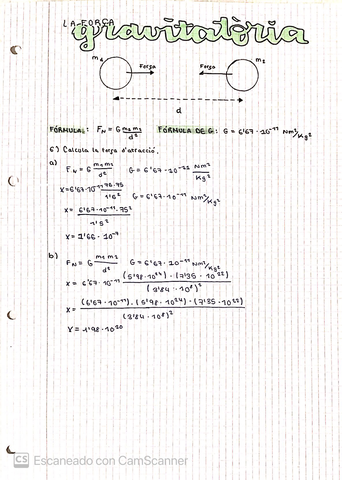 LA FORÇA
gravitatòria
m₁ Força Força m₂
d
FÓRMULA: F_N = G m₁m₂/d² FÓRMULA DE G: G = 6'67 · 10⁻¹¹ Nm²/Kg²
6) Calcula la força d'atracció.
a)
F_N = G m₁m₂/d² G = 6'67 · 10⁻¹¹ Nm²/Kg²
X = 6'67 · 10⁻¹¹ 75·75/1'5² G = 6'67 · 10⁻¹¹ Nm²/Kg²
X = 6'67 · 10⁻¹¹ · 75²/1'5²
X = 1'66 · 10⁻⁷
b)
F_N = G m₁m₂/d² G = 6'67 · 10⁻¹¹ Nm²/Kg²
X = 6'67 · 10⁻¹¹ (5'98 · 10²⁴) · (7'35 · 10²²)/(3'84 · 10⁸)²
X = (6'67 · 10⁻¹¹) · (5'98 · 10²⁴) · (7'35 · 10²²)/(3'84 · 10⁸)²
X = 1'98 · 10²⁰
CS Escaneado con CamScanner